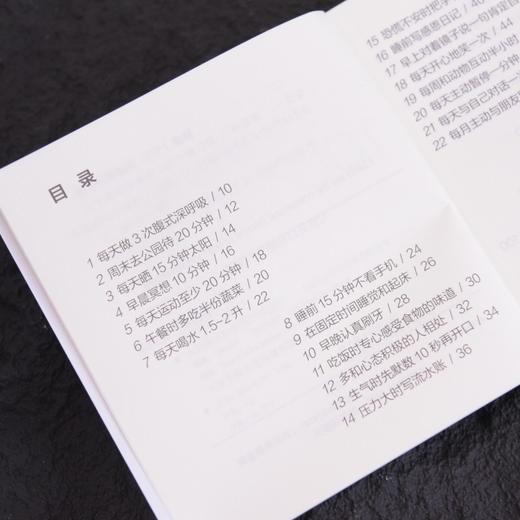 目 录
1 每天做 3 次腹式深呼吸 / 10
2 周末去公园待 20 分钟 / 12
3 每天晒 15 分钟太阳 / 14
4 早晨冥想 10 分钟 / 16
5 每天运动至少 20 分钟 / 18
6 午餐时多吃半份蔬菜 / 20
7 每天喝水 1.5-2 升 / 22
8 睡前 15 分钟不看手机 / 24
9 在固定时间睡觉和起床 / 26
10 早晚认真刷牙 / 28
11 吃饭时专心感受食物的味道 / 30
12 多和心态积极的人相处 / 32
13 生气时先默数 10 秒再开口 / 34
14 压力大时写流水账 / 36
15 恐慌不安时把手
16 睡前写感恩日记 / 40
17 早上对着镜子说一句肯定自
18 每天开心地笑一次 / 44
19 每周和动物互动半小时
20 每天主动暂停一分钟
21 每天与自己对话一
22 每月主动与朋友